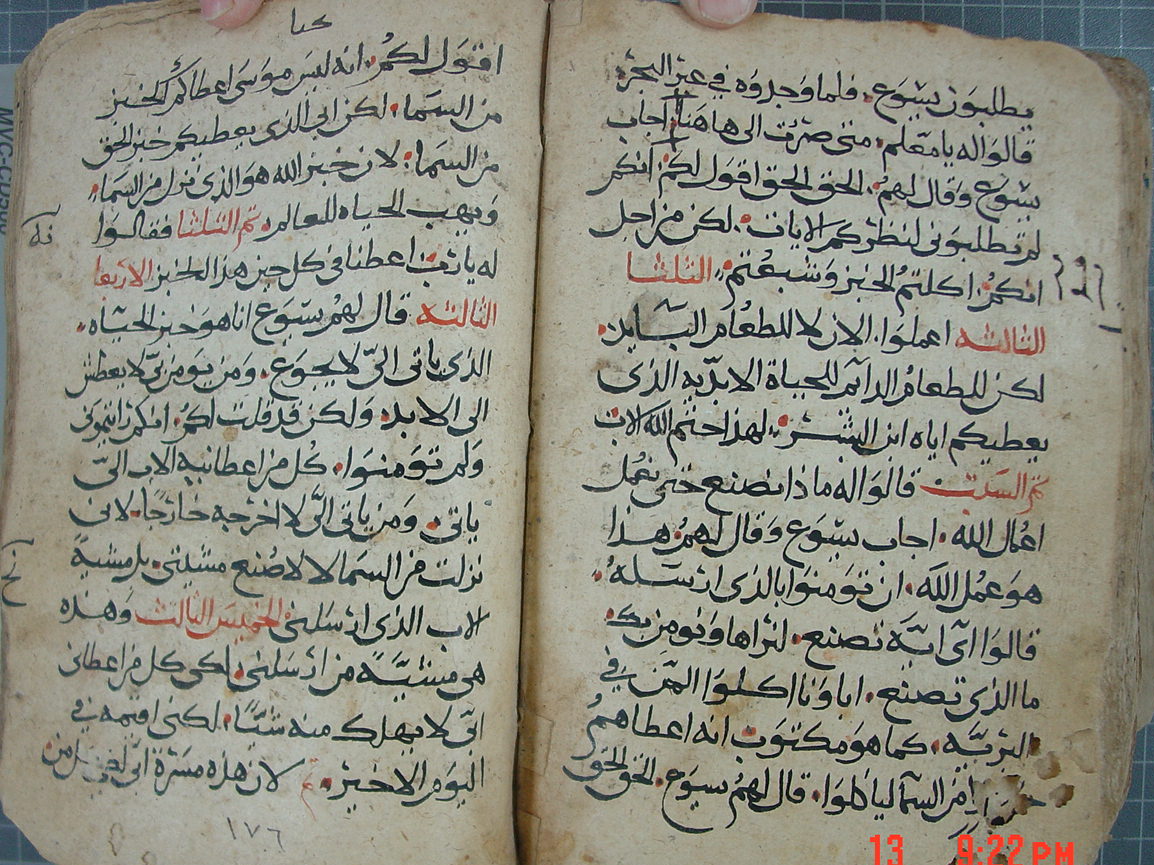 يطلبون يسوع. فلما وجدوه في عبر البحر.
قالوا له يا معلم. متى صرت الى هاهنا. اجاب
يسوع وقال لهم. الحق الحق اقول لكم. انكم
لم تطلبوني لنظركم الايات. لكن من اجل
انكم. اكلتم الخبز وشبعتم. الثلثا
الثالثه اعملوا. الان لا للطعام البايد.
لكن للطعام الدايم للحياة الابديه الذى
يعطيكم اياه ابن البشر. لهذا ختم الله الاب
تم السبت قالوا له ماذا نصنع حتى نعمل
اعمال الله. اجاب يسوع وقال لهم. هذا
هو عمل الله. ان تومنوا بالذى ارسله.
قالوا اى ايه تصنع. لنراها ونومن بك.
ما الذى تصنع. اباونا اكلوا المن في
البريه. كما هو مكتوب انه اعطاهم
من السما لياكلوا. قال لهم يسوع. الحق الحق
اقول لكم. انه ليس موسى اعطاكم الخبز
من السما. لكن ابى الذى يعطيكم خبز الحق
من السما. لان خبز الله هو الذى نزل من السما.
ويهب الحياه للعالم. تم الثلثا فقالوا
له يا رب اعطنا فى كل حين هذا الخبز الاربعا
الثالثه قال لهم يسوع انا هو خبز الحياه.
الذى ياتى الىّ لا يجوع. ومن يومن بى لا يعطش
الى الابد. ولكن قد قلت لكم. انكم رايتمونى
ولم تومنوا. كل من اعطانيه الاب الىّ
ياتى. ومن ياتى الىّ لا اخرجه خارجا. لانى
نزلت من السما لا لاصنع مشيتى. بل مشية
الاب الذى ارسلنى الخميس الثالث وهذه
هى مشيّة من ارسلنى. لكى كل من اعطانى
ابى لا يهلك منه شيّا. لكنى اقيمه في
اليوم الاخير. تم لان هذه مسرة ابى لكى كل من
١٧٦
13 9:22 PM